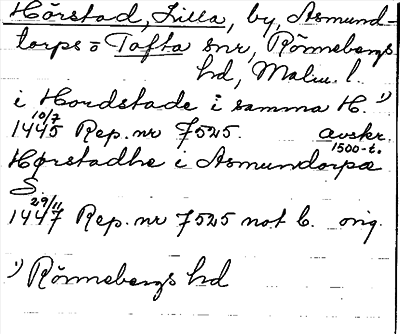 Hörstad, Lilla, by, Asmund-
torps o Tofta snr, Rönnebergs
hd, Malm. l.
i Hordstade i samma H. 1)
10/7
1445 Rep. nr 7525. avskr.
1500-t.
Hørstadhe i Asmundorpa
S
29/11
1447 Rep. nr 7525 not b. orig.
1) Rönnebergs hd